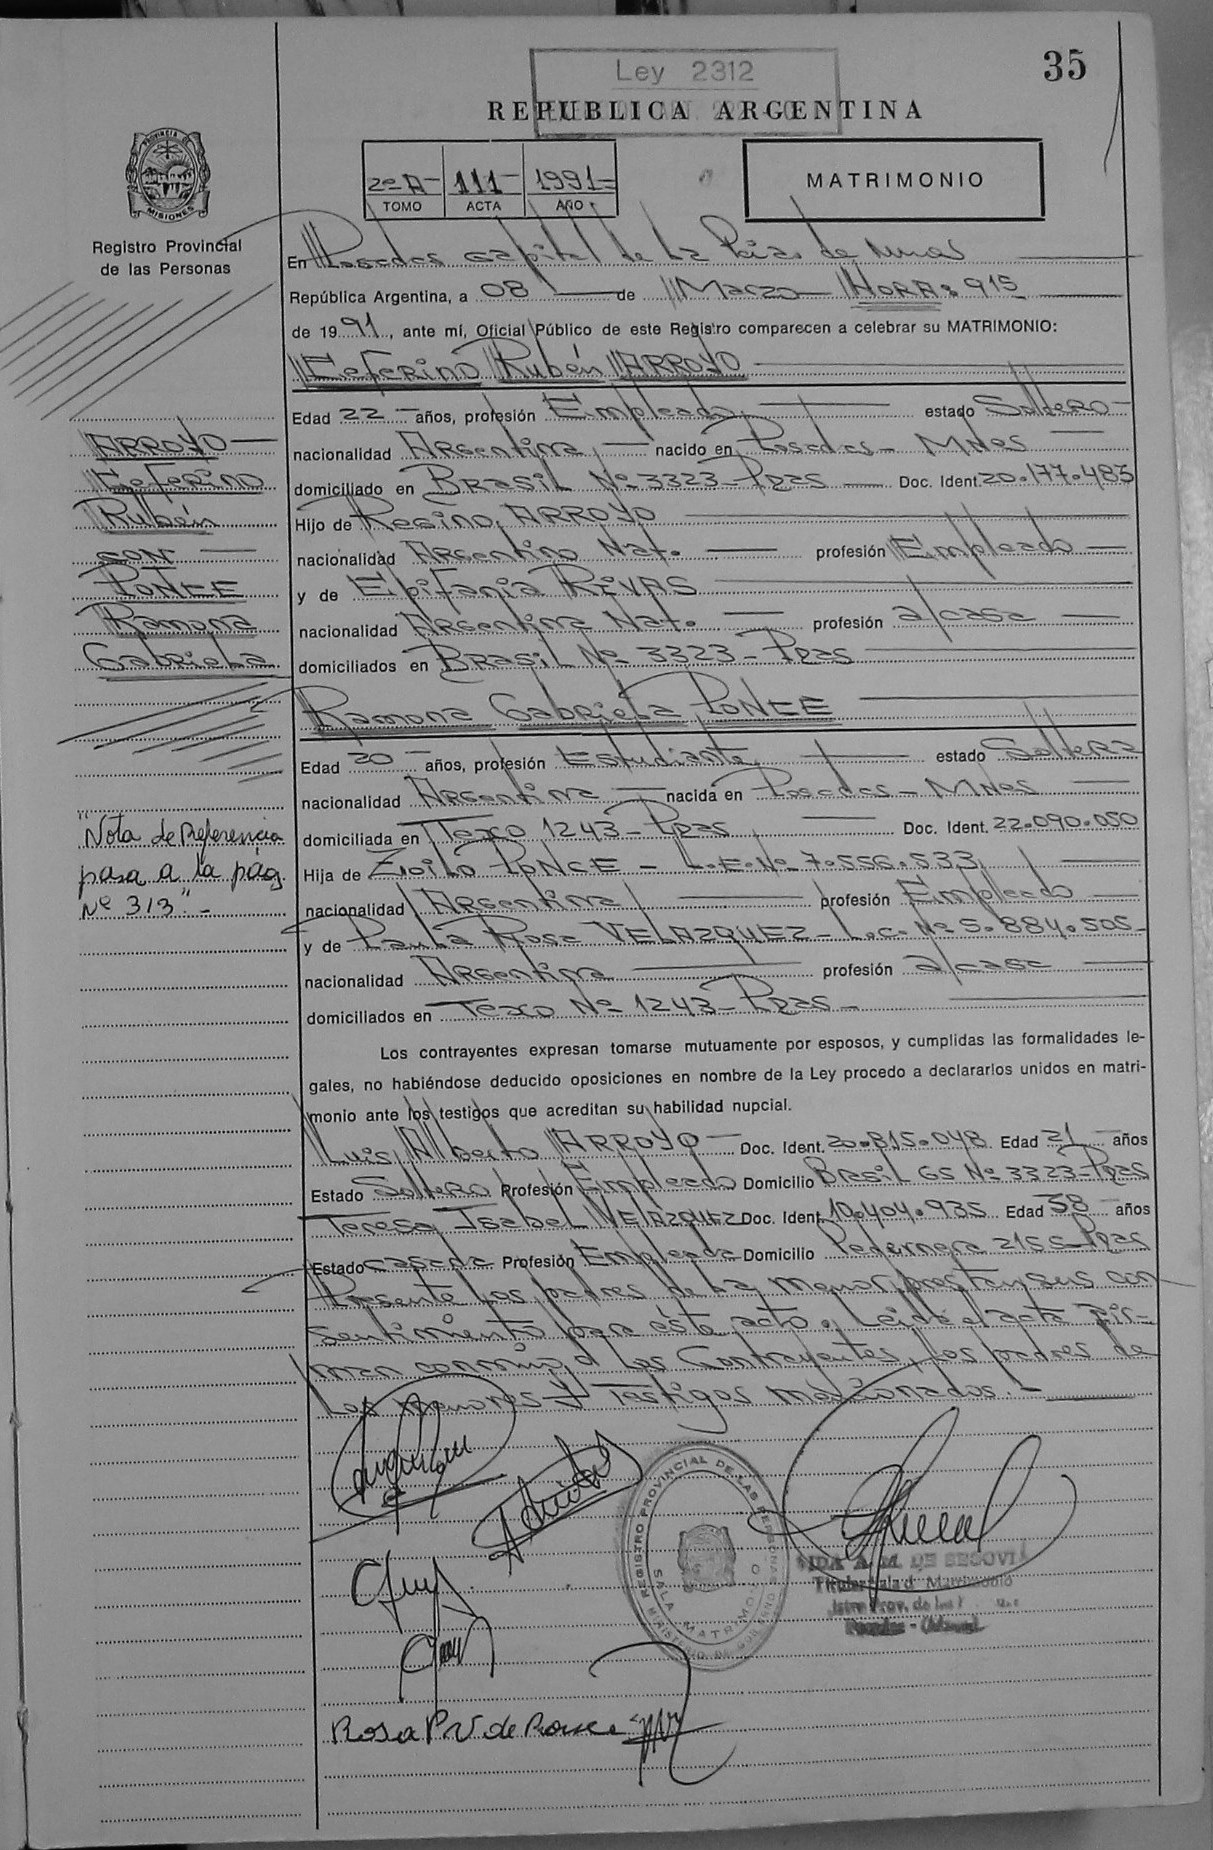 35
Ley 2312
REPUBLICA ARGENTINA
PROVINCIA DE
MISIONES
Registro Provincial
de las Personas
2º A- 111- 1991-
TOMO ACTA AÑO
MATRIMONIO
En Posadas capital de La Pcia. de Mnes
República Argentina, a 08 de Marzo - HORA: 915
de 1991, ante mí, Oficial Público de este Registro comparecen a celebrar su MATRIMONIO:
Ceferino Rubén ARROYO
Edad 22 - años, profesión Empleado estado Soltero -
nacionalidad Argentina, nacido en Posadas - MNes
domiciliado en BRASIL Nº 3323 - Pdas Doc. Ident. 20.177.483
Hijo de Regino, ARROYO
nacionalidad Argentino Nat. profesión Empleado -
y de Epifania RIVAS
nacionalidad Argentina Nat. profesión a/casa
domiciliados en BRASIL Nº 3323 - Pdas
Ramona Gabriela PONCE
Edad 20 - años, profesión Estudiante estado Soltera
nacionalidad Argentina nacida en Posadas - MNes
domiciliada en 1243 - Pdas Doc. Ident. 22.090.050
Hija de Zoilo PONCE - L.E.Nº 7.556.533
nacionalidad Argentina profesión Empleado
y de Paula Rosa VELAZQUEZ - L.C. Nº 5.884.505 -
nacionalidad Argentina profesión a/casa
domiciliados en Nº 1243 - Pdas -
Los contrayentes expresan tomarse mutuamente por esposos, y cumplidas las formalidades le-
gales, no habiéndose deducido oposiciones en nombre de la Ley procedo a declararlos unidos en matri-
monio ante los testigos que acreditan su habilidad nupcial.
Luis Alberto ARROYO - Doc. Ident. 20.815.048 Edad 21 - años
Estado Soltero Profesión Empleado Domicilio BRASIL Nº 3323 - Pdas
Teresa Isabel VELAZQUEZ Doc. Ident. 10.404.935 Edad 38 - años
Estado casada Profesión Empleada Domicilio Pedernera 2155 - Pdas
Presente los padres de La menor, prestan sus con
sentimiento para éste acto. Leída el acta Fir-
man conmigo los Contrayentes, los padres de
Los menores y Testigos mencionados. -
ARROYO -
Ceferino
Rubén
CON
PONCE
Ramona
Gabriela
"Nota de Referencia
pasa a la pág.
Nº 313". -
REGISTRO PROVINCIAL DE LAS PERSONAS
SALA MATRIMONIO
MINISTERIO DE GOBIERNO
A. M. DE SEGOVIA
Titular Sala d Matrimonio
Prov. de las
Posadas - (Misiones)
Rosa P V de Ponce